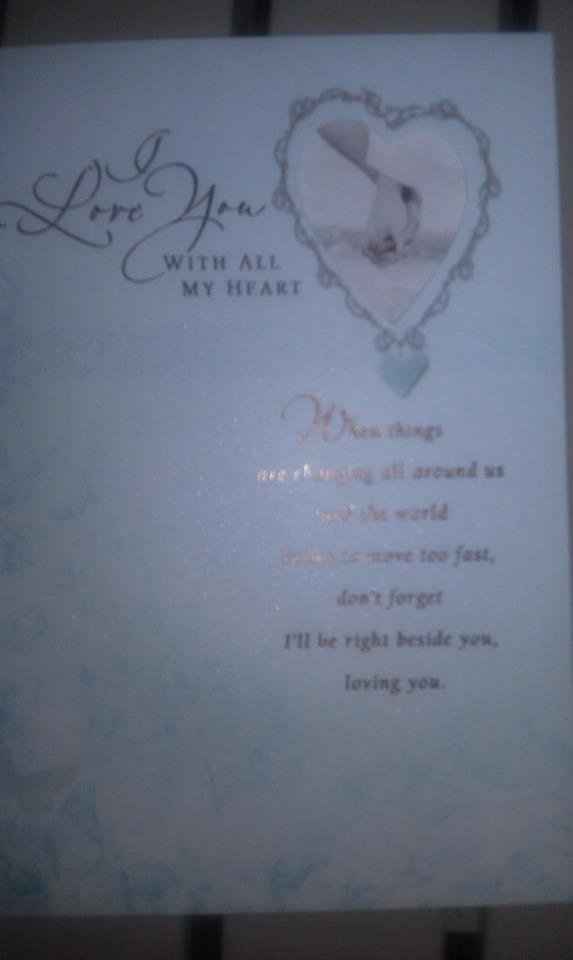 I
Love You
WITH ALL
MY HEART
When things
are changing all around us
and the world
to move too fast,
don't forget
I'll be right beside you,
loving you.